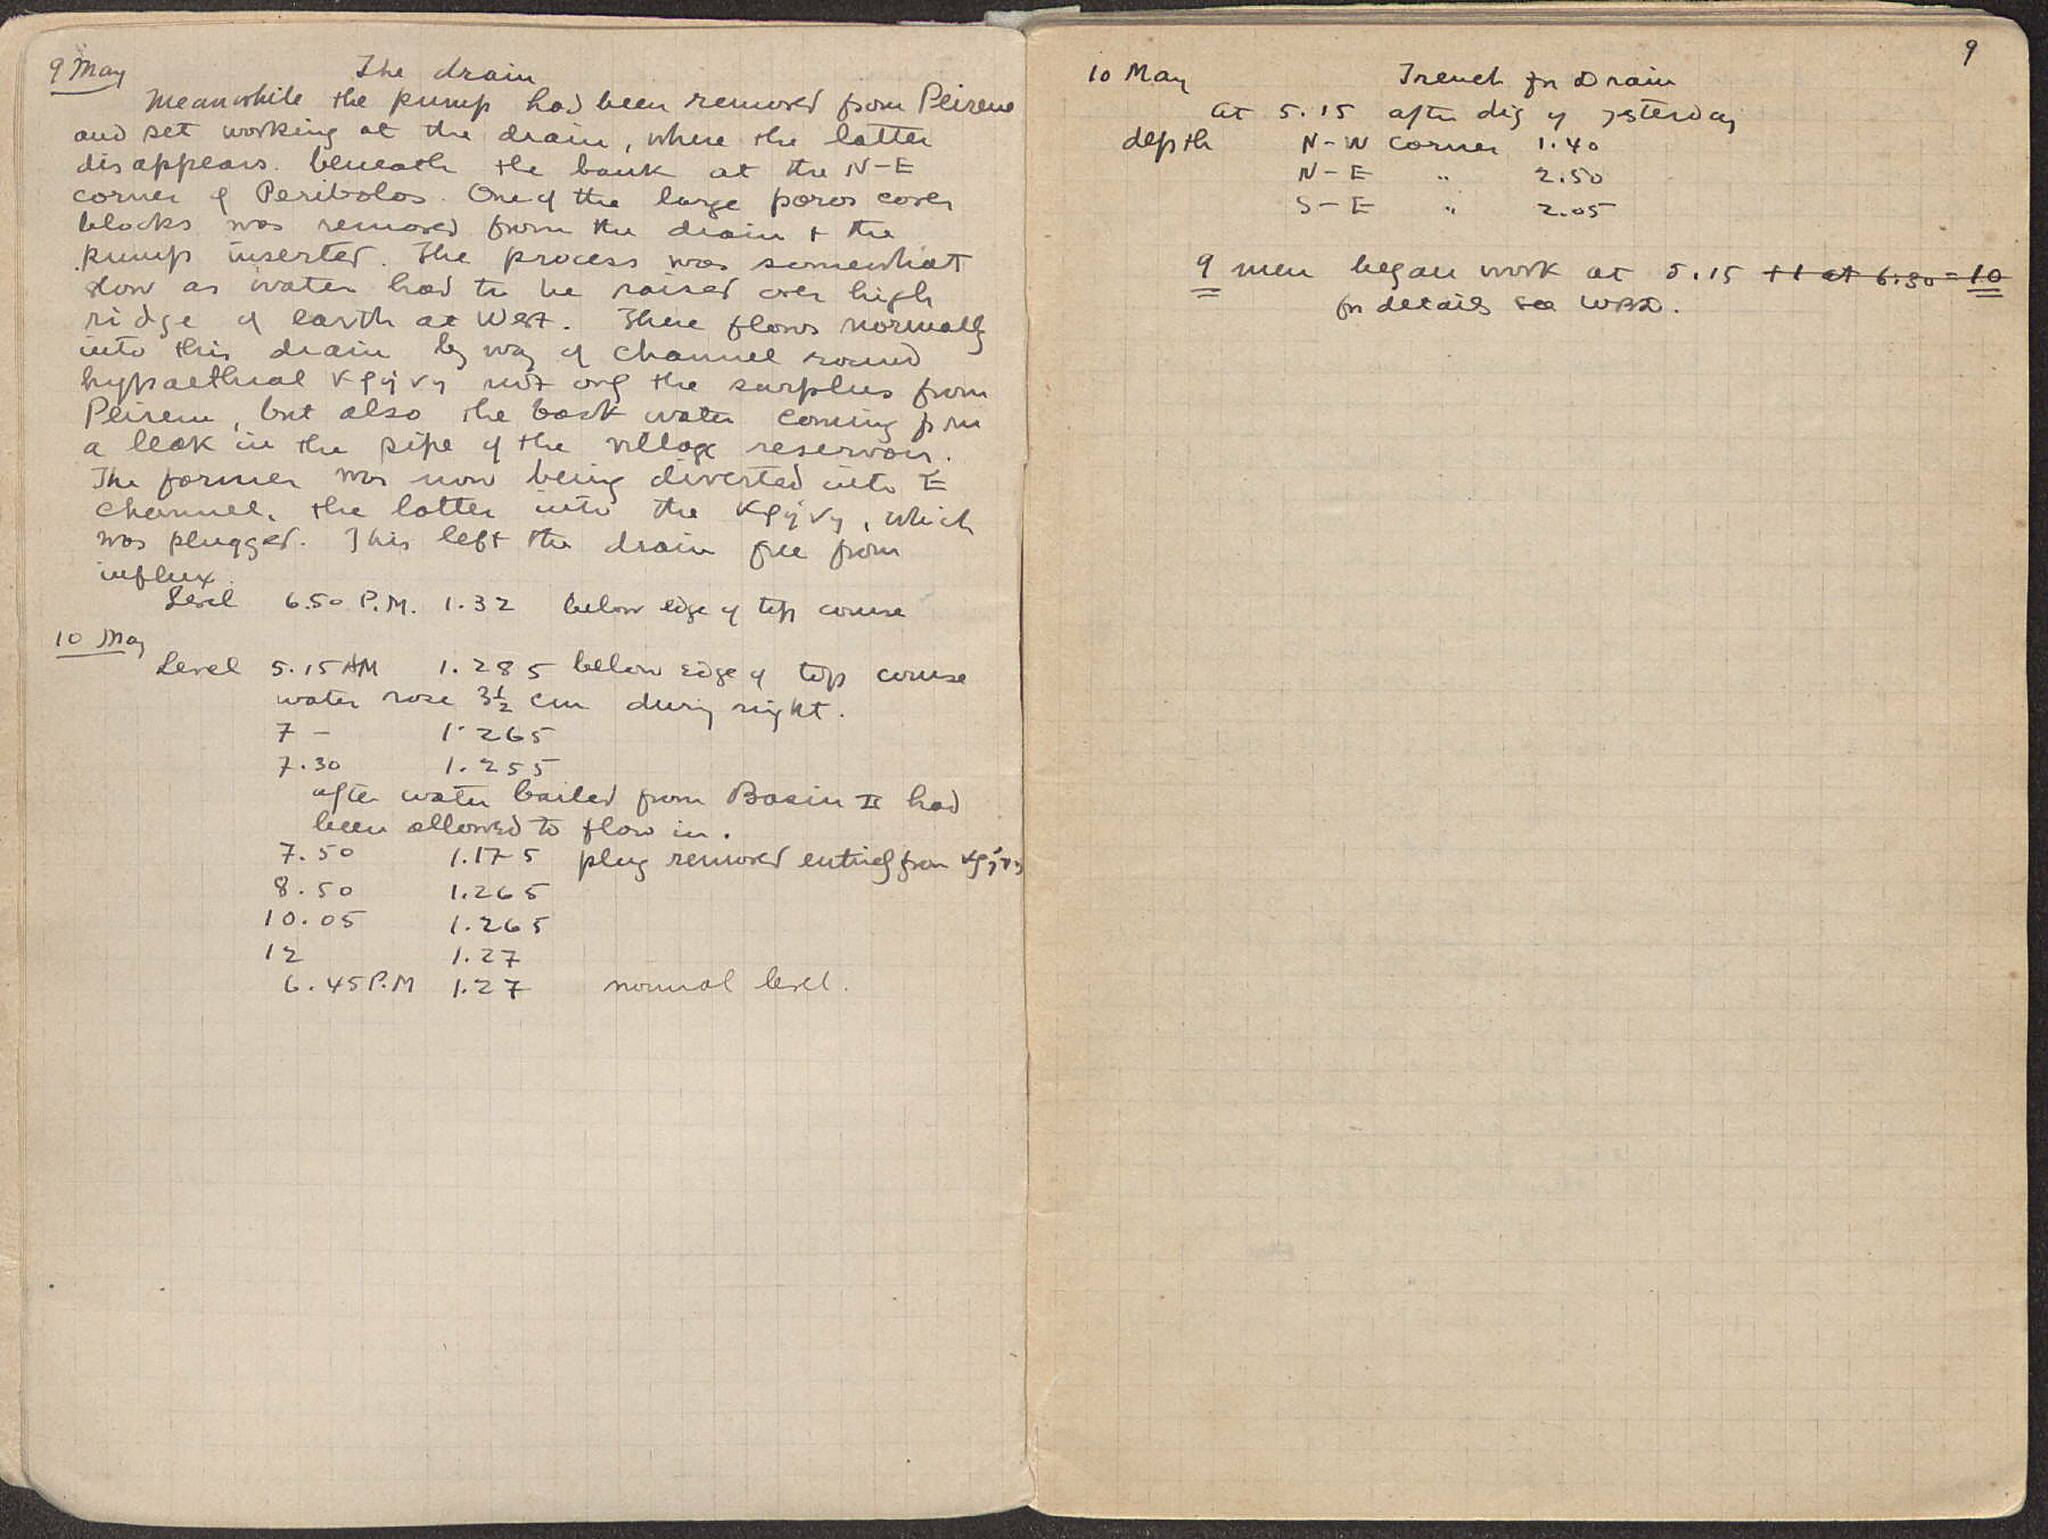 9 May
The drain
Meanwhile the pump had been removed from Peirene
and set working at the drain, where the latter
disappears beneath the bank at the N-E
corner of Peribolos. One of the large poros cover
blocks was removed from the drain + the
pump inserted. The process was somewhat
slow as water had to be raised over high
ridge of earth at West. There flows normally
into this drain by way of channel round
hypaethral κρήνη not only the surplus from
Peirene, but also the back water coming from
a leak in the pipe of the village reservoir.
The former was now being diverted into E
channel, the latter into the κρήνη, which
was plugged. This left the drain free from
influx.
Level 6.50 P.M. 1.32 below edge of top course
10 May
Level 5.15 AM 1.285 below edge of top course
water rose 3½ cm during night.
7 - 1.265
7.30 1.255
after water bailed from Basin II had
been allowed to flow in.
7.50 1.175 plug removed entirely from κρήνη
8.50 1.265
10.05 1.265
12 1.27
6.45 P.M 1.27 normal level.
9
10 May Trench for Drain
at 5.15 after dig of yesterday
depth N-W corner 1.40
N-E " 2.50
S-E " 2.05
9 men began work at 5.15 +1 at 6:30 = 10
for details see WBD.